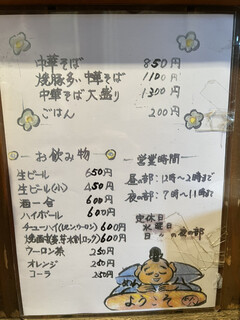 中華そば 850円
焼豚多い中華そば 1100円
中華そば大盛り 1300円
ごはん 200円
お飲み物
生ビール 650円
生ビール(小) 450円
酒一合 600円
ハイボール 600円
チューハイ(レモン.ウーロン) 600円
焼酎 600円
ウーロン茶 250円
オレンジ 250円
コーラ 250円
営業時間
昼の部:12時〜2時まで
夜の部:7時〜11時まで
定休日
水曜日
日 の夜の部
ようこそ